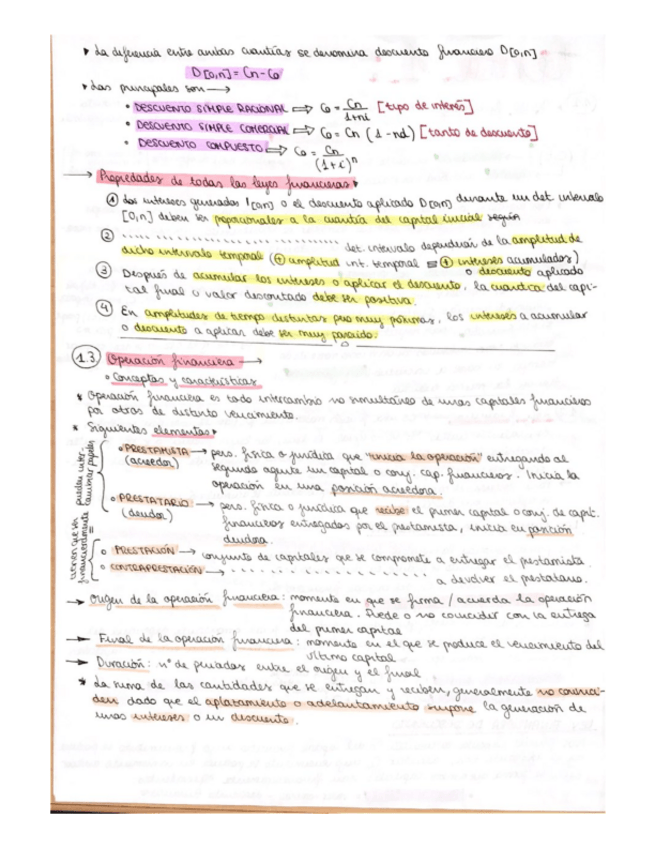 ▸ La diferencia entre ambas cuantías se denomina descuento financiero D[0,n]
D[0,n] = Cn - C0
▸ Las principales son →
• DESCUENTO SIMPLE RACIONAL ⇒ C0 = Cn / 1+ni [tipo de interés]
• DESCUENTO SIMPLE COMERCIAL ⇒ C0 = Cn (1 - nd) [tanto de descuento]
• DESCUENTO COMPUESTO ⇒ C0 = Cn / (1+i)^n
→ Propiedades de todas las leyes financieras ▸
① Los intereses generados I[0,n] o el descuento aplicado D[0,n] durante un det. intervalo
[0,n] deben ser proporcionales a la cuantía del capital inicial según
② ........................ det. intervalo dependerán de la amplitud de
dicho intervalo temporal (⊕ amplitud int. temporal = ⊕ intereses acumulados)
o descuento aplicado
③ Después de acumular los intereses o aplicar el descuento, la cuantía del capi-
tal final o valor descontado debe ser positiva.
④ En amplitudes de tiempo distintas pero muy próximas, los intereses a acumular
o descuento a aplicar debe ser muy parecido.
1.3 Operación financiera →
• Conceptos y características
* Operación financiera es todo intercambio no simultáneo de unos capitales financieros
por otros de distinto vencimiento.
* Siguientes elementos ▸
pueden inter-
cambiar papeles
o PRESTAMISTA → pers. física o jurídica que "inicia la operación" entregando al
(acreedor) segundo agente un capital o conj. cap. financieros. Inicia la
operación en una posición acreedora.
o PRESTATARIO → pers. física o jurídica que recibe el primer capital o conj. de capit.
(deudor) financieros entregados por el prestamista, inicia en posición
deudora.
tienen que ser
financieramente =
o PRESTACIÓN → conjunto de capitales que se compromete a entregar el prestamista.
o CONTRAPRESTACIÓN → .................... a devolver el prestatario.
→ Origen de la operación financiera: momento en que se firma / acuerda la operación
financiera. Puede o no coincidir con la entrega
del primer capital
→ Final de la operación financiera: momento en el que se produce el vencimiento del
último capital
→ Duración: nº de periodos entre el origen y el final
* La suma de las cantidades que se entregan y reciben, generalmente no coinci-
den dado que el aplazamiento o adelantamiento supone la generación de
unos intereses o un descuento.